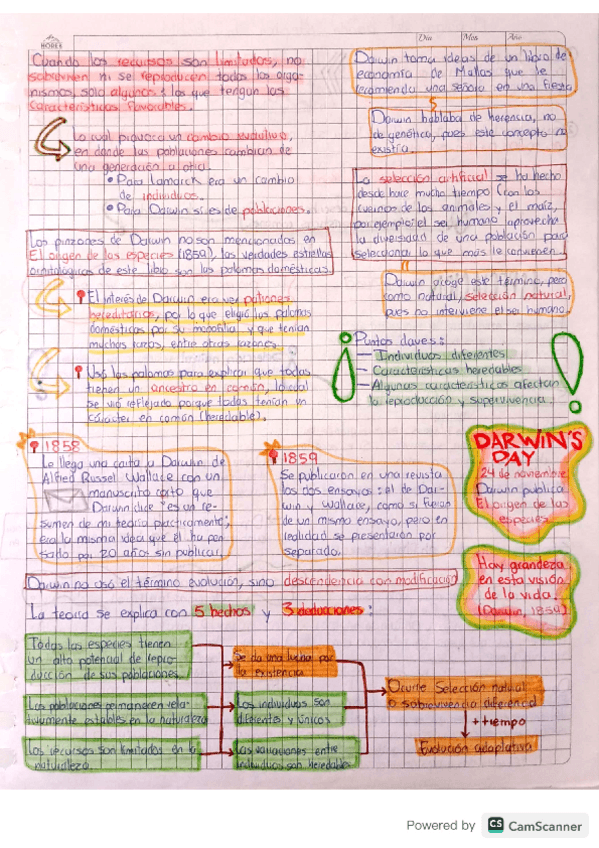 NORMA
Día Mes Año
Cuando los recursos son limitados, no
sobreviven ni se reproducen todos los orga-
nismos, solo algunos: los que tengan las
características favorables.
Lo cual provoca un cambio evolutivo,
en donde las poblaciones cambian de
una generación a otra.
• Para Lamarck era un cambio
de individuos.
• Para Darwin si es de poblaciones.
Los pinzones de Darwin no son mencionados en
El origen de las especies (1859), las verdades estrellas
ornitológicas de este libro son las palomas domésticas.
El interés de Darwin era ver patrones
hereditarios, por lo que eligió las palomas
domésticas por su y que tenían
muchas razas, entre otras razones.
Usó las palomas para explicar que todas
tienen un ancestro en común, lo cual
se vió reflejado porque todas tenían un
carácter en común (heredable).
Darwin toma ideas de un libro de
economía de Maltas que le
recomienda una señora en una fiesta
Darwin hablaba de herencia, no
de genética, pues este concepto no
existía.
La selección artificial se ha hecho
desde hace mucho tiempo (con los
de los animales y el maíz,
por ejemplo: el ser humano aprovecha
la diversidad de una población para
seleccionar lo que más le convienen.
Darwin acoge este término, pero
como natural, selección natural,
pues no interviene el ser humano.
Puntos claves:
— Individuos diferentes
— Características heredables
— Algunas características afectan
la reproducción y supervivencia.
1858
Le llego una carta a Darwin de
Alfred Russel Wallace con un
manuscrito corto que
Darwin dice "es un re-
sumen de mi teoría prácticamente",
era la misma idea que el ha pen-
sado por 20 años sin publicar.
1859
Se publicaron en una revista
los dos ensayos: el de Dar-
win y Wallace, como si fueran
de un mismo ensayo, pero en
realidad se presentaron por
separado.
DARWIN'S
DAY
24 de noviembre
Darwin publica
El origen de las
especies
Hay grandeza
en esta visión
de la vida.
(Darwin, 1859)
Darwin no usó el término evolución, sino descendencia con modificación
La teoría se explica con 5 hechos y 3 deducciones:
Todas las especies tienen
un alto potencial de repro-
ducción de sus poblaciones.
Las poblaciones permanecen rela-
tivamente estables en la naturaleza
Los recursos son limitados en la
naturaleza
Se da una lucha por
la existencia
Los individuos son
diferentes y únicos
Las variaciones entre
individuos son heredables
Ocurre Selección natural
o sobrevivencia diferencial
+ tiempo
Evolución adaptativa
Powered by CS CamScanner